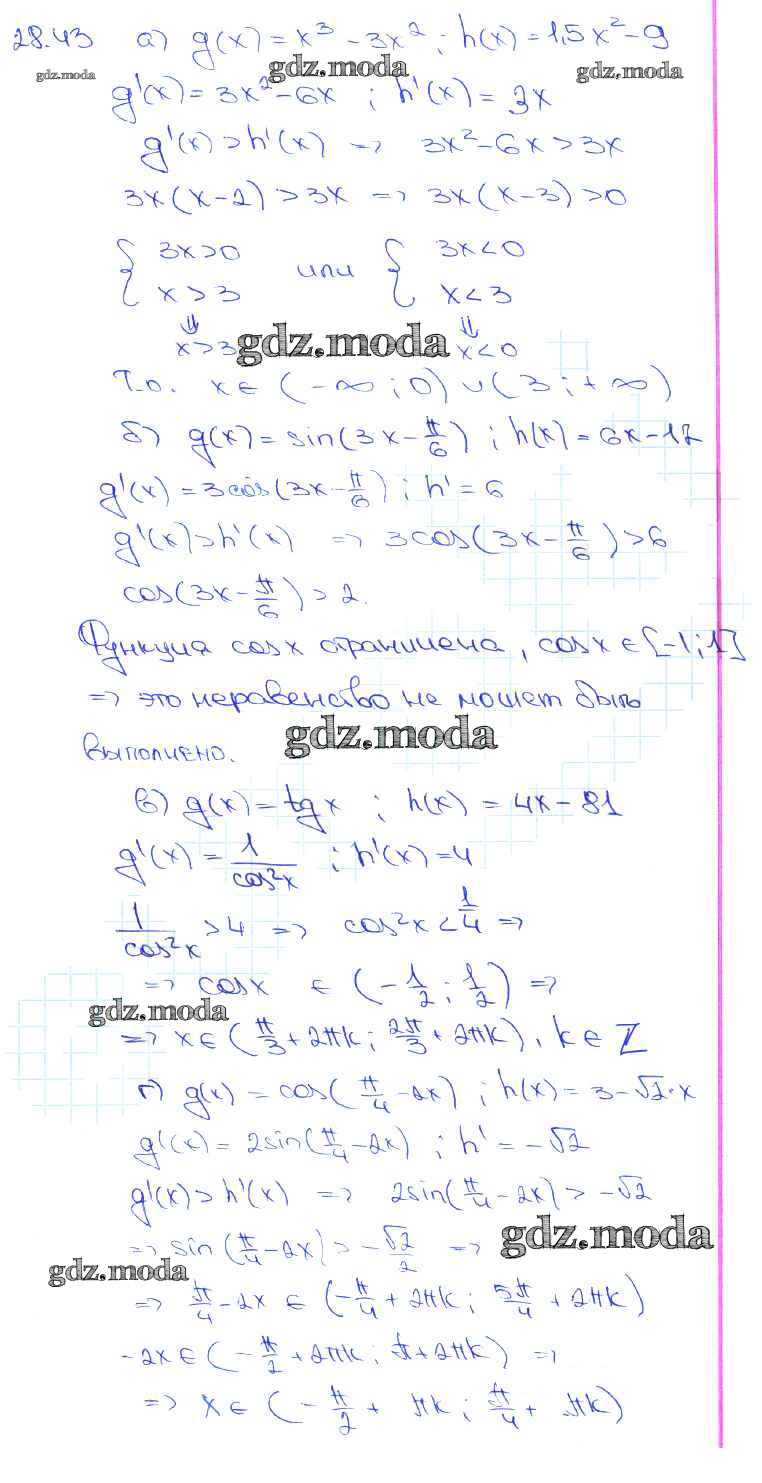 28.43 а) g(x) = x³ - 3x² ; h(x) = 1,5x² - 9
gdz.moda gdz.moda gdz.moda
g'(x) = 3x² - 6x ; h'(x) = 3x
g'(x) > h'(x) => 3x² - 6x > 3x
3x(x-2) > 3x => 3x(x-3) > 0
{ 3x>0 или { 3x<0
x>3 x<3
⇓ ⇓
x>3 gdz.moda x<0
Т.о. x ∈ (-∞ ; 0) ∪ (3 ; +∞)
б) g(x) = sin(3x - π/6) ; h(x) = 6x - 12
g'(x) = 3cos(3x - π/6) ; h' = 6
g'(x) > h'(x) => 3cos(3x - π/6) > 6
cos(3x - π/6) > 2.
Функция cosx ограничена, cosx ∈ [-1;1]
=> это неравенство не может быть
gdz.moda
выполнено.
в) g(x) = tgx ; h(x) = 4x - 81
g'(x) = 1/cos²x ; h'(x) = 4
1/cos²x > 4 => cos²x < 1/4 =>
=> cosx ∈ (-1/2 ; 1/2) =>
gdz.moda
=> x ∈ (π/3 + 2πk ; 2π/3 + 2πk), k ∈ Z
г) g(x) = cos(π/4 - 2x) ; h(x) = 3 - √2·x
g'(x) = 2sin(π/4 - 2x) ; h' = -√2
g'(x) > h'(x) => 2sin(π/4 - 2x) > -√2
=> sin(π/4 - 2x) > -√2/2 => gdz.moda
gdz.moda
=> π/4 - 2x ∈ (-π/4 + 2πk ; 5π/4 + 2πk)
-2x ∈ (-π/2 + 2πk ; π + 2πk) =>
=> x ∈ (-π/2 + πk ; π/4 + πk)